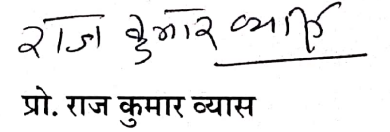 राज कुमार व्यास
प्रो. राज कुमार व्यास